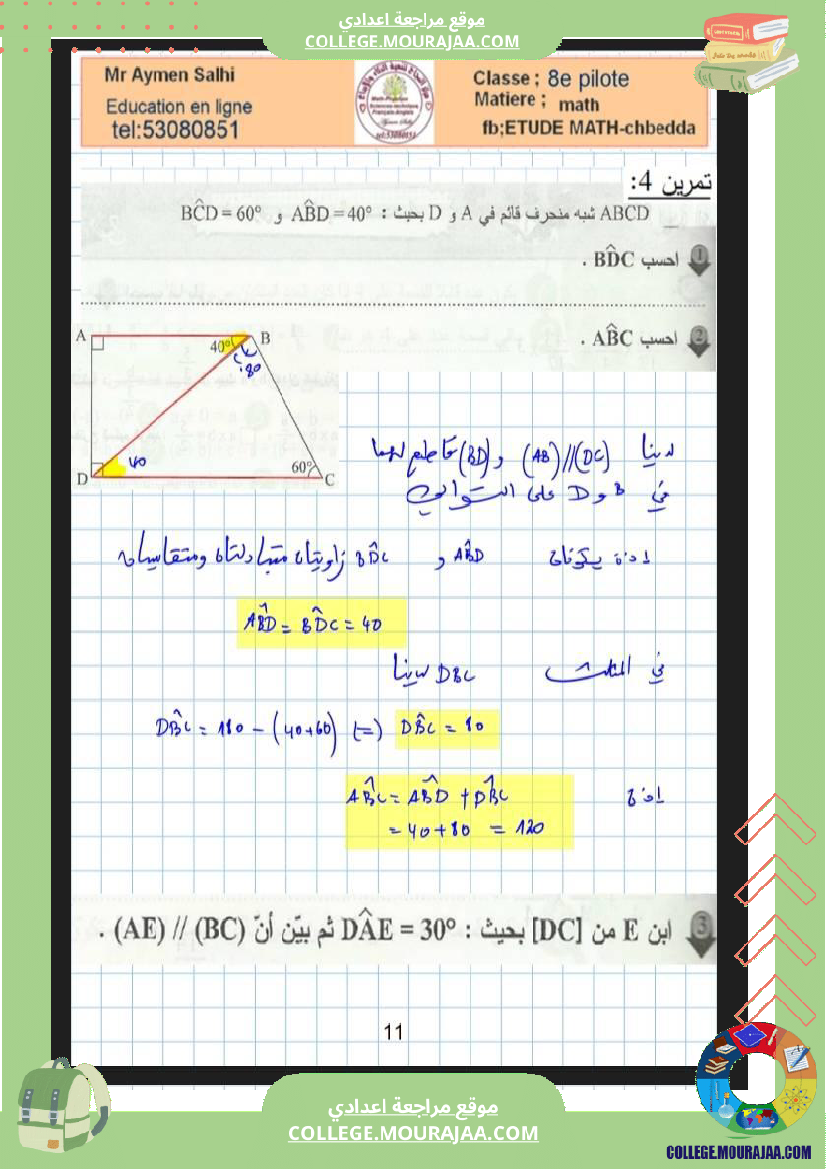 موقع مراجعة اعدادي
COLLEGE.MOURAJAA.COM
Mr Aymen Salhi
Education en ligne
tel:53080851
Classe ; 8e pilote
Matiere ; math
fb;ETUDE MATH-chbedda
تمرين 4:
ABCD شبه منحرف قائم في A و D بحيث : AB̂D = 40° و BĈD = 60°
1 احسب BD̂C .
2 احسب AB̂C .
A
B
40°
80
D
40
60°
C
لدينا (AB)//(DC) و (BD) قاطع لهما
في B و D على التوالي
اذن يكونان AB̂D و BD̂C زاويتان متبادلتان ومتقايستان
AB̂D = BD̂C = 40
في المثلث DBC لدينا
DB̂C = 180 - (40+60) (=) DB̂C = 80
اذن AB̂C = AB̂D + DB̂C
= 40 + 80 = 120
3 ابن E من [DC] بحيث : DÂE = 30° ثم بيّن أنّ (AE) // (BC) .
11
موقع مراجعة اعدادي
COLLEGE.MOURAJAA.COM
COLLEGE.MOURAJAA.COM